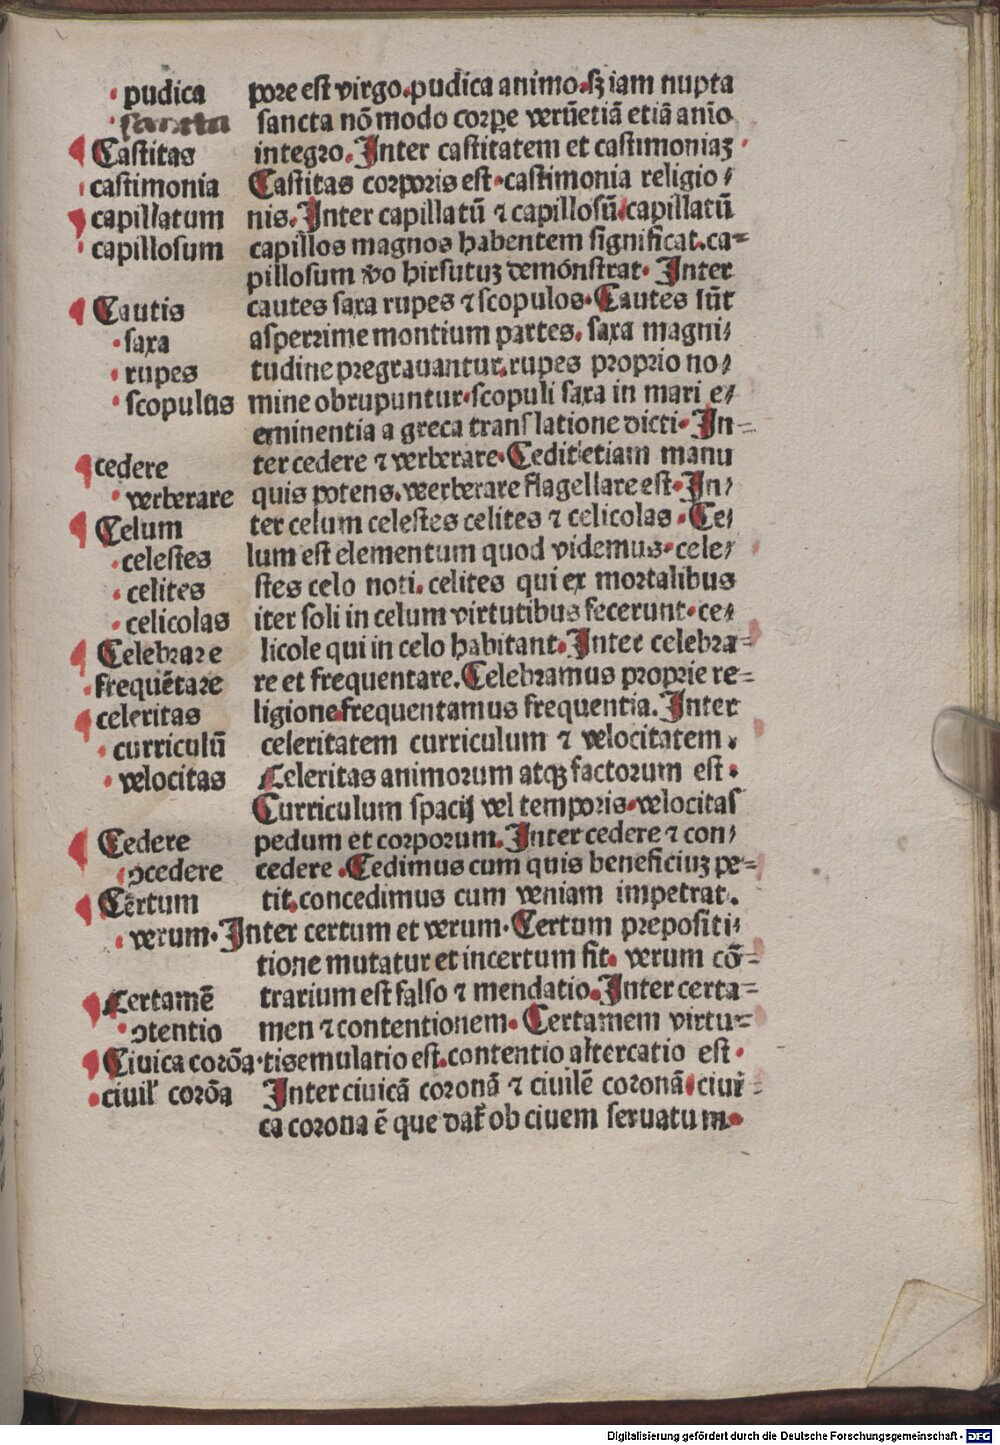 pudica pore est virgo. pudica animo. sꝫ iam nupta
sancta sancta nō modo corpe verūetiā etiā anīo
Castitas integro. Inter castitatem et castimoniaꝫ
castimonia Castitas corporis est. castimonia religio⸗
capillatum nis. Inter capillatū ⁊ capillosū. capillatū
capillosum capillos magnos habentem significat. ca⸗
pillosum vo hirsutuꝫ demonstrat. Inter
Cautis cautes saxa rupes ⁊ scopulos. Cautes sūt
saxa asperrime montium partes. saxa magni⸗
rupes tudine pregrauantur. rupes proprio no⸗
scopulus mine obrupuntur. scopuli saxa in mari e⸗
eminentia a greca translatione dicti. In⸗
cedere ter cedere ⁊ verberare. Cedit etiam manu
verberare quis potens. verberare flagellare est. In⸗
Celum ter celum celestes celites ⁊ celicolas. Ce⸗
celestes lum est elementum quod videmus. cele⸗
celites stes celo noti. celites qui ex mortalibus
celicolas iter soli in celum virtutibus fecerunt. ce⸗
Celebrare licole qui in celo habitant. Inter celebra⸗
frequētare re et frequentare. Celebramus proprie re⸗
celeritas ligione. frequentamus frequentia. Inter
curriculū celeritatem curriculum ⁊ velocitatem.
velocitas Celeritas animorum atqꝫ factorum est.
Curriculum spacij vel temporis. velocitas
Cedere pedum et corporum. Inter cedere ⁊ con⸗
ꝯcedere cedere. Cedimus cum quis beneficiuꝫ pe⸗
Certum tit. concedimus cum veniam impetrat.
verum. Inter certum et verum. Certum prepositi⸗
tione mutatur et incertum fit. verum cō⸗
Certamē trarium est falso ⁊ mendatio. Inter certa⸗
ꝯtentio men ⁊ contentionem. Certamem virtu⸗
Ciuica corōa. tis emulatio est. contentio altercatio est.
ciuil' corōa Inter ciuicā coronā ⁊ ciuilē coronā. ciui⸗
ca corona ē que dat' ob ciuem seruatum.
Digitalisierung gefördert durch die Deutsche Forschungsgemeinschaft - DFG